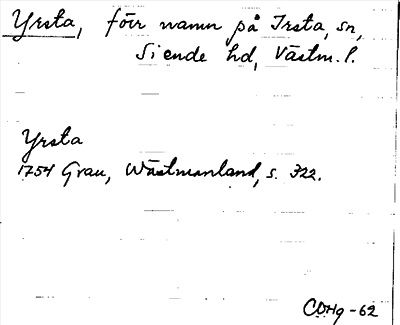 Yrsta, förr namn på Irsta, sn,
Siende hd, Västm. l.
Yrsta
1754 Grau, Wästmanland, s. 322.
CDHg -62